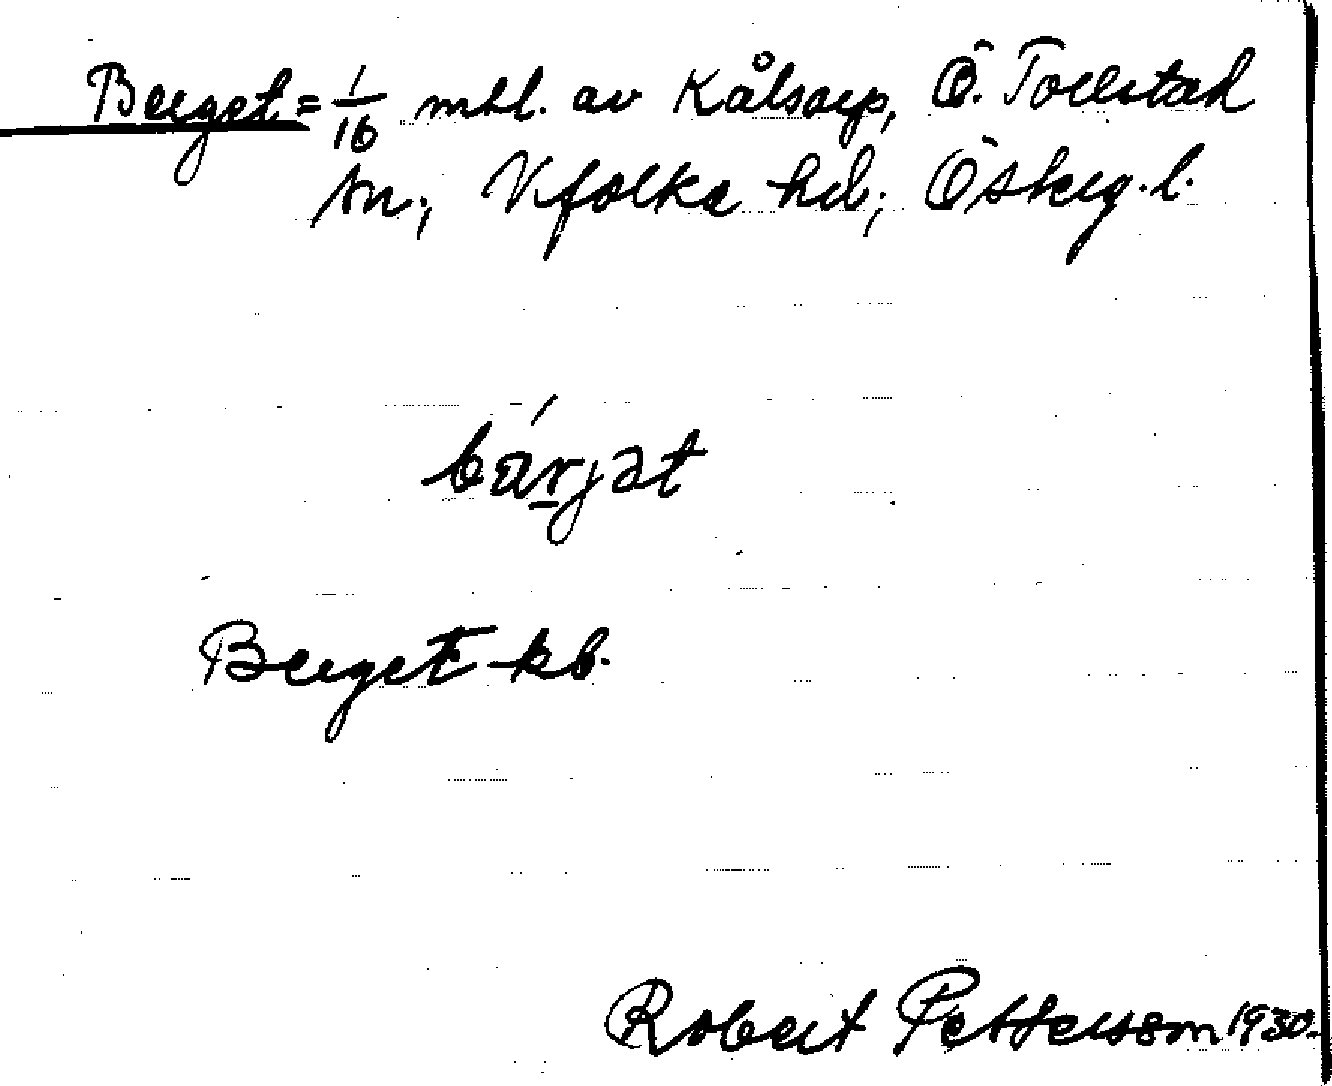 Berget = 1/16 mtl. av Kålsarp, Ö. Tollstad
sn; Vifolka hd; Östерg. l.
bár̲jət
Berget kb.
Robert Pettersson 1930.